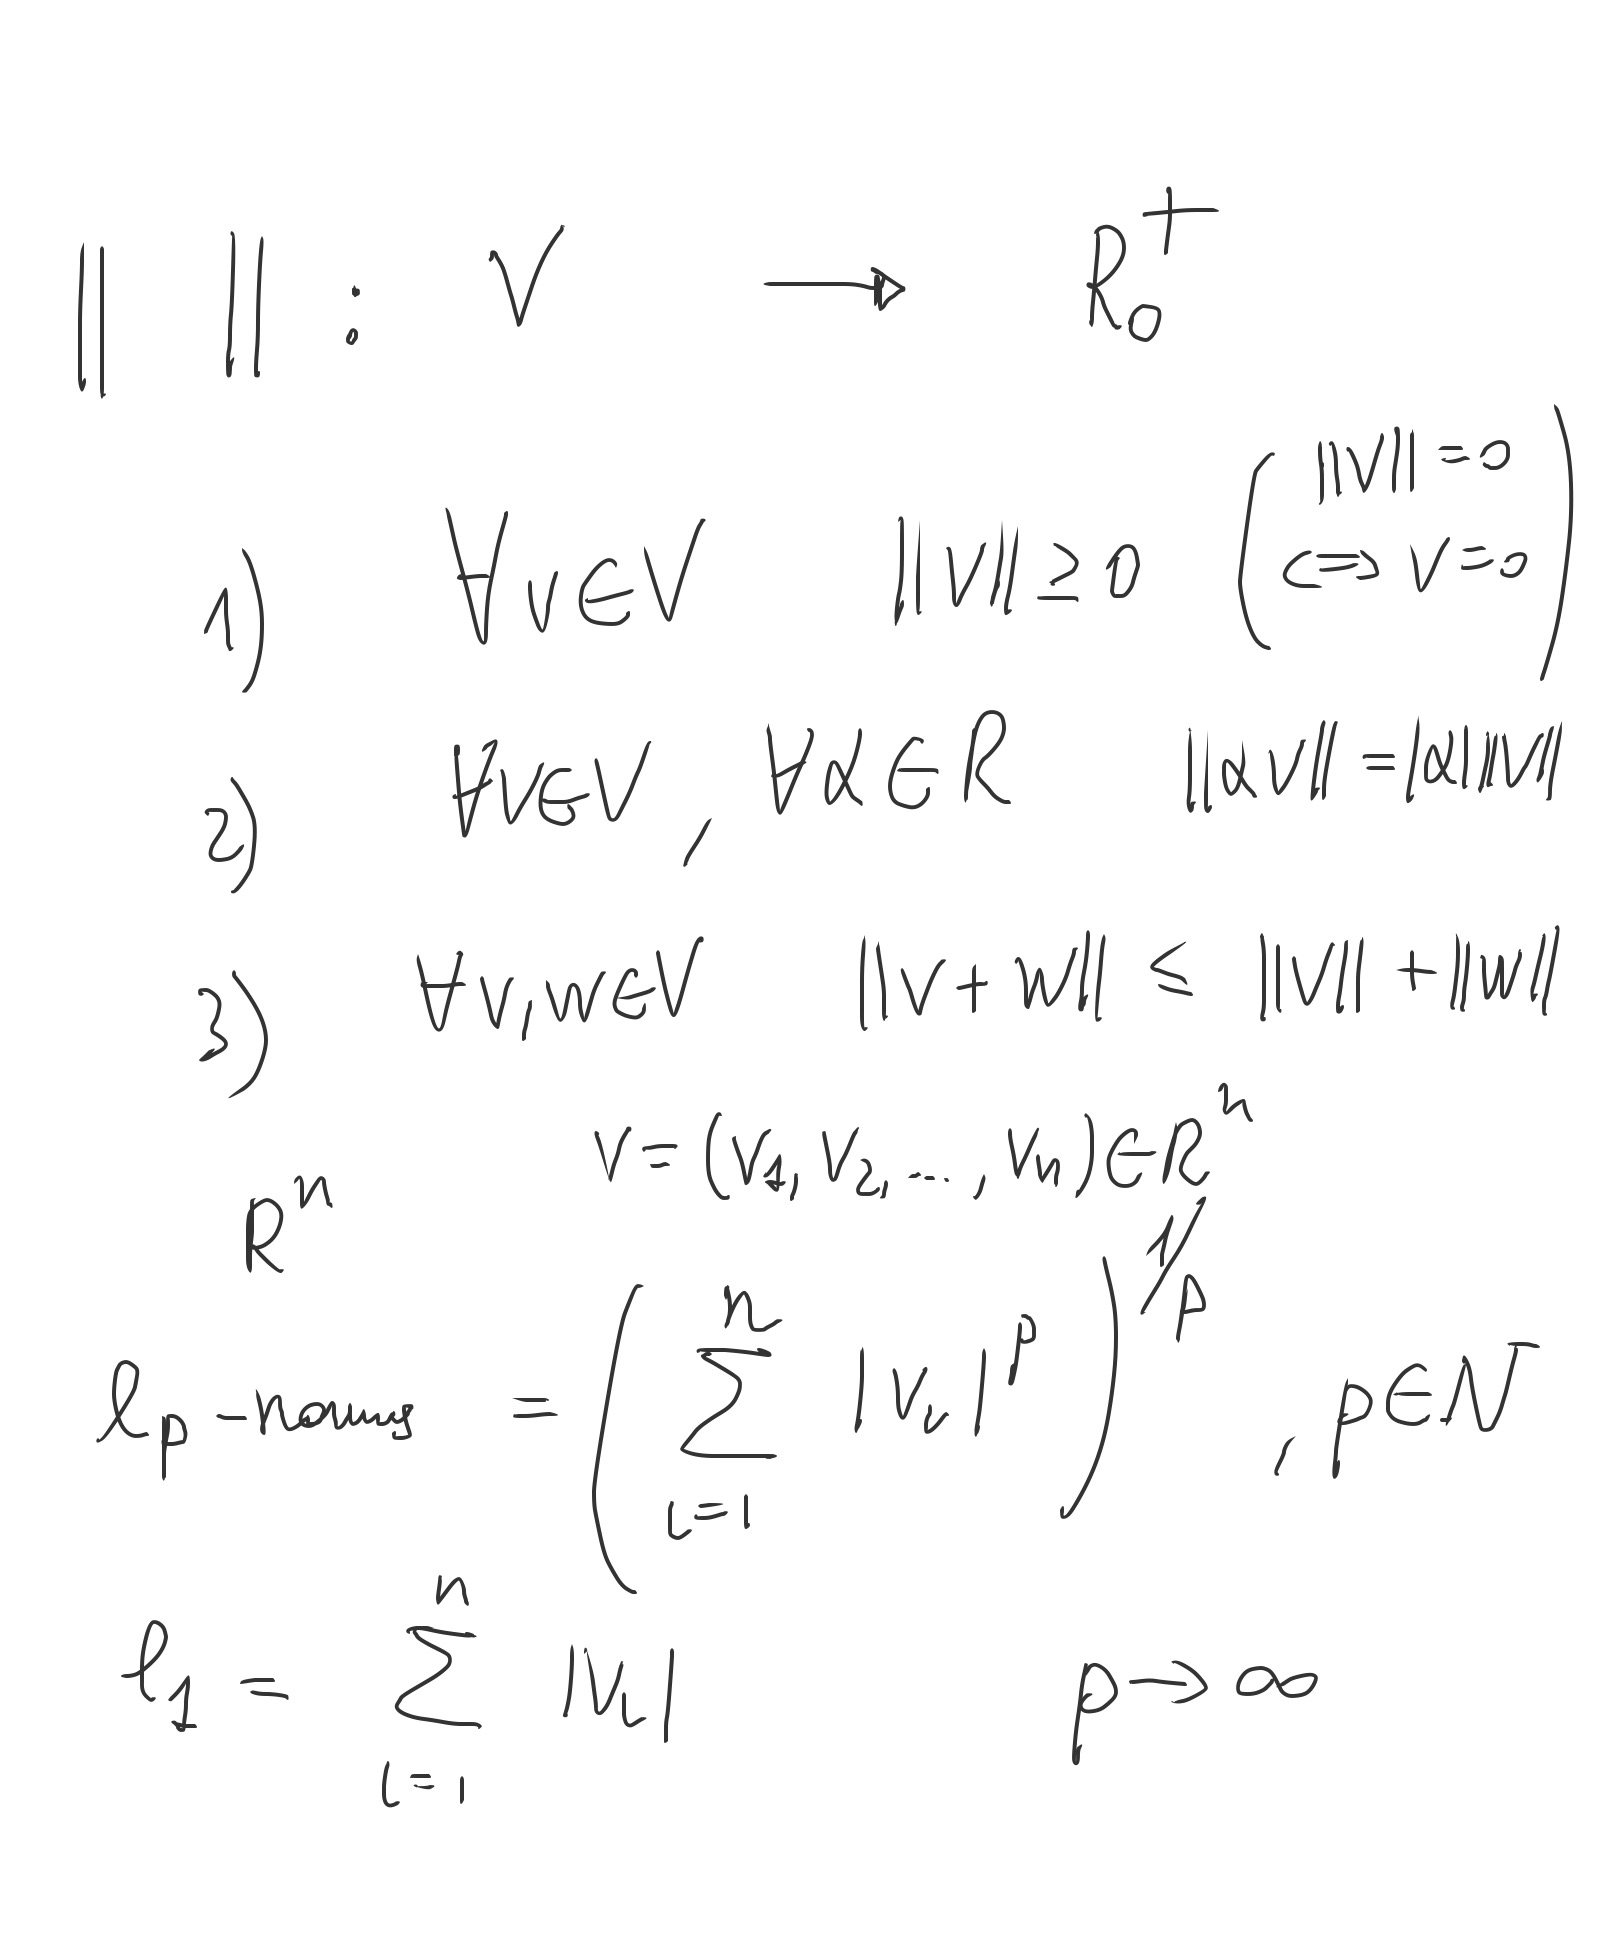 ‖ ‖ : V → R₀⁺
1) ∀v∈V ‖v‖ ≥ 0 (‖v‖ = 0 ⟺ v = 0)
2) ∀v∈V, ∀α∈R ‖αv‖ = |α|‖v‖
3) ∀v,w∈V ‖v+w‖ ≤ ‖v‖ + ‖w‖
v = (v₁, v₂, ..., vₙ) ∈ Rⁿ
Rⁿ
ℓₚ-norms = (∑ᵢ₌₁ⁿ |vᵢ|ᵖ)^{1/p}, p∈N
ℓ₁ = ∑ᵢ₌₁ⁿ |vᵢ| p → ∞